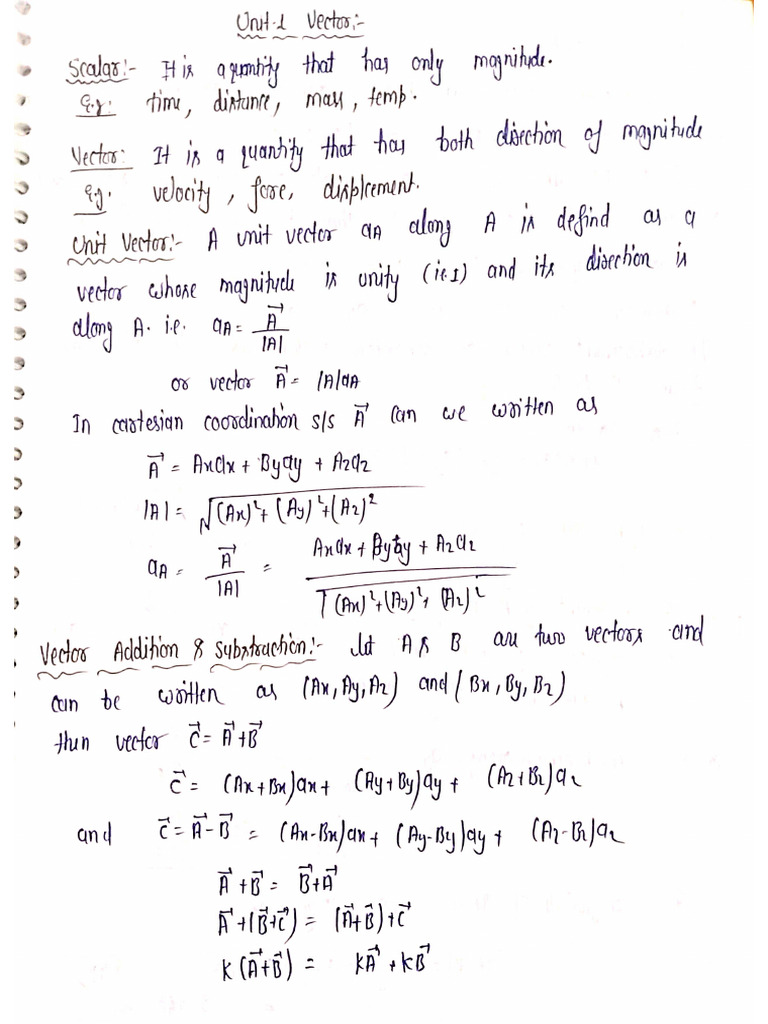 Unit-1 Vector:-
Scalar:- It is a quantity that has only magnitude.
E.g. time, distance, mass, temp.
Vector: It is a quantity that has both direction of magnitude
E.g. velocity, force, displcement.
Unit Vector:- A unit vector aA along A is defind as a
vector whose magnitude is unity (i.e 1) and its direction is
along A. i.e. aA = A⃗ / |A|
or vector A⃗ = |A|aA
In cartesian coordination s/s A⃗ can we written as
A⃗ = Axax + Byay + Azaz
|A| = √(Ax)²+(Ay)²+(Az)²
aA = A⃗ / |A| = Axax + Byay + Azaz / √(Ax)²+(Ay)²+(Az)²
Vector Addition & Substraction:- let A & B are two vectors and
can be written as (Ax, Ay, Az) and (Bx, By, Bz)
then vector C⃗ = A⃗+B⃗
C⃗ = (Ax+Bx)ax + (Ay+By)ay + (Az+Bz)az
and C⃗ = A⃗-B⃗ = (Ax-Bx)ax + (Ay-By)ay + (Az-Bz)az
A⃗+B⃗ = B⃗+A⃗
A⃗+(B⃗+C⃗) = (A⃗+B⃗)+C⃗
K(A⃗+B⃗) = KA⃗ + KB⃗